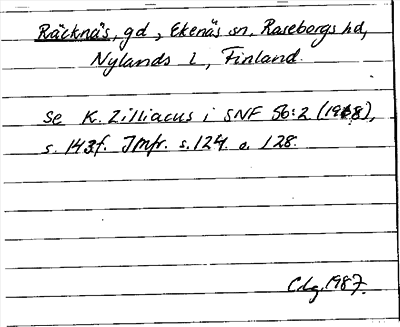 Räcknäs, gd, Ekenäs sn, Raseborgs hd,
Nylands l, Finland.
Se K. Zilliacus i SNF 56:2 (1968),
s. 143f. Jmfr. s. 124. o. 128.
Clg. 1987.